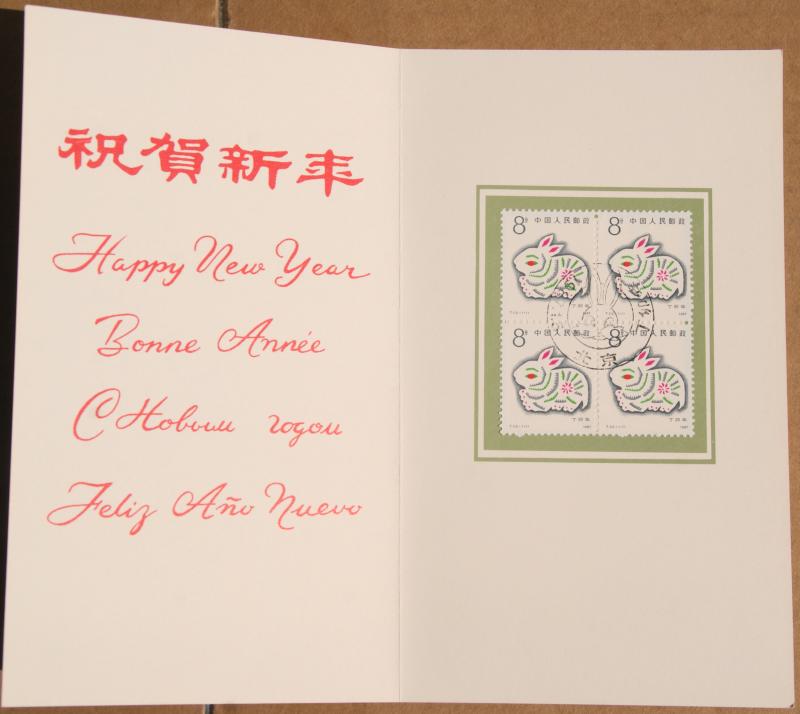 祝賀新年
Happy New Year
Bonne Année
С Новым годом
Feliz Año Nuevo
8分 中国人民邮政
8分 中国人民邮政
丁卯年
1987
丁卯年
1987
8分 中国人民邮政
8分 中国人民邮政
北京
丁卯年
1987
丁卯年
1987